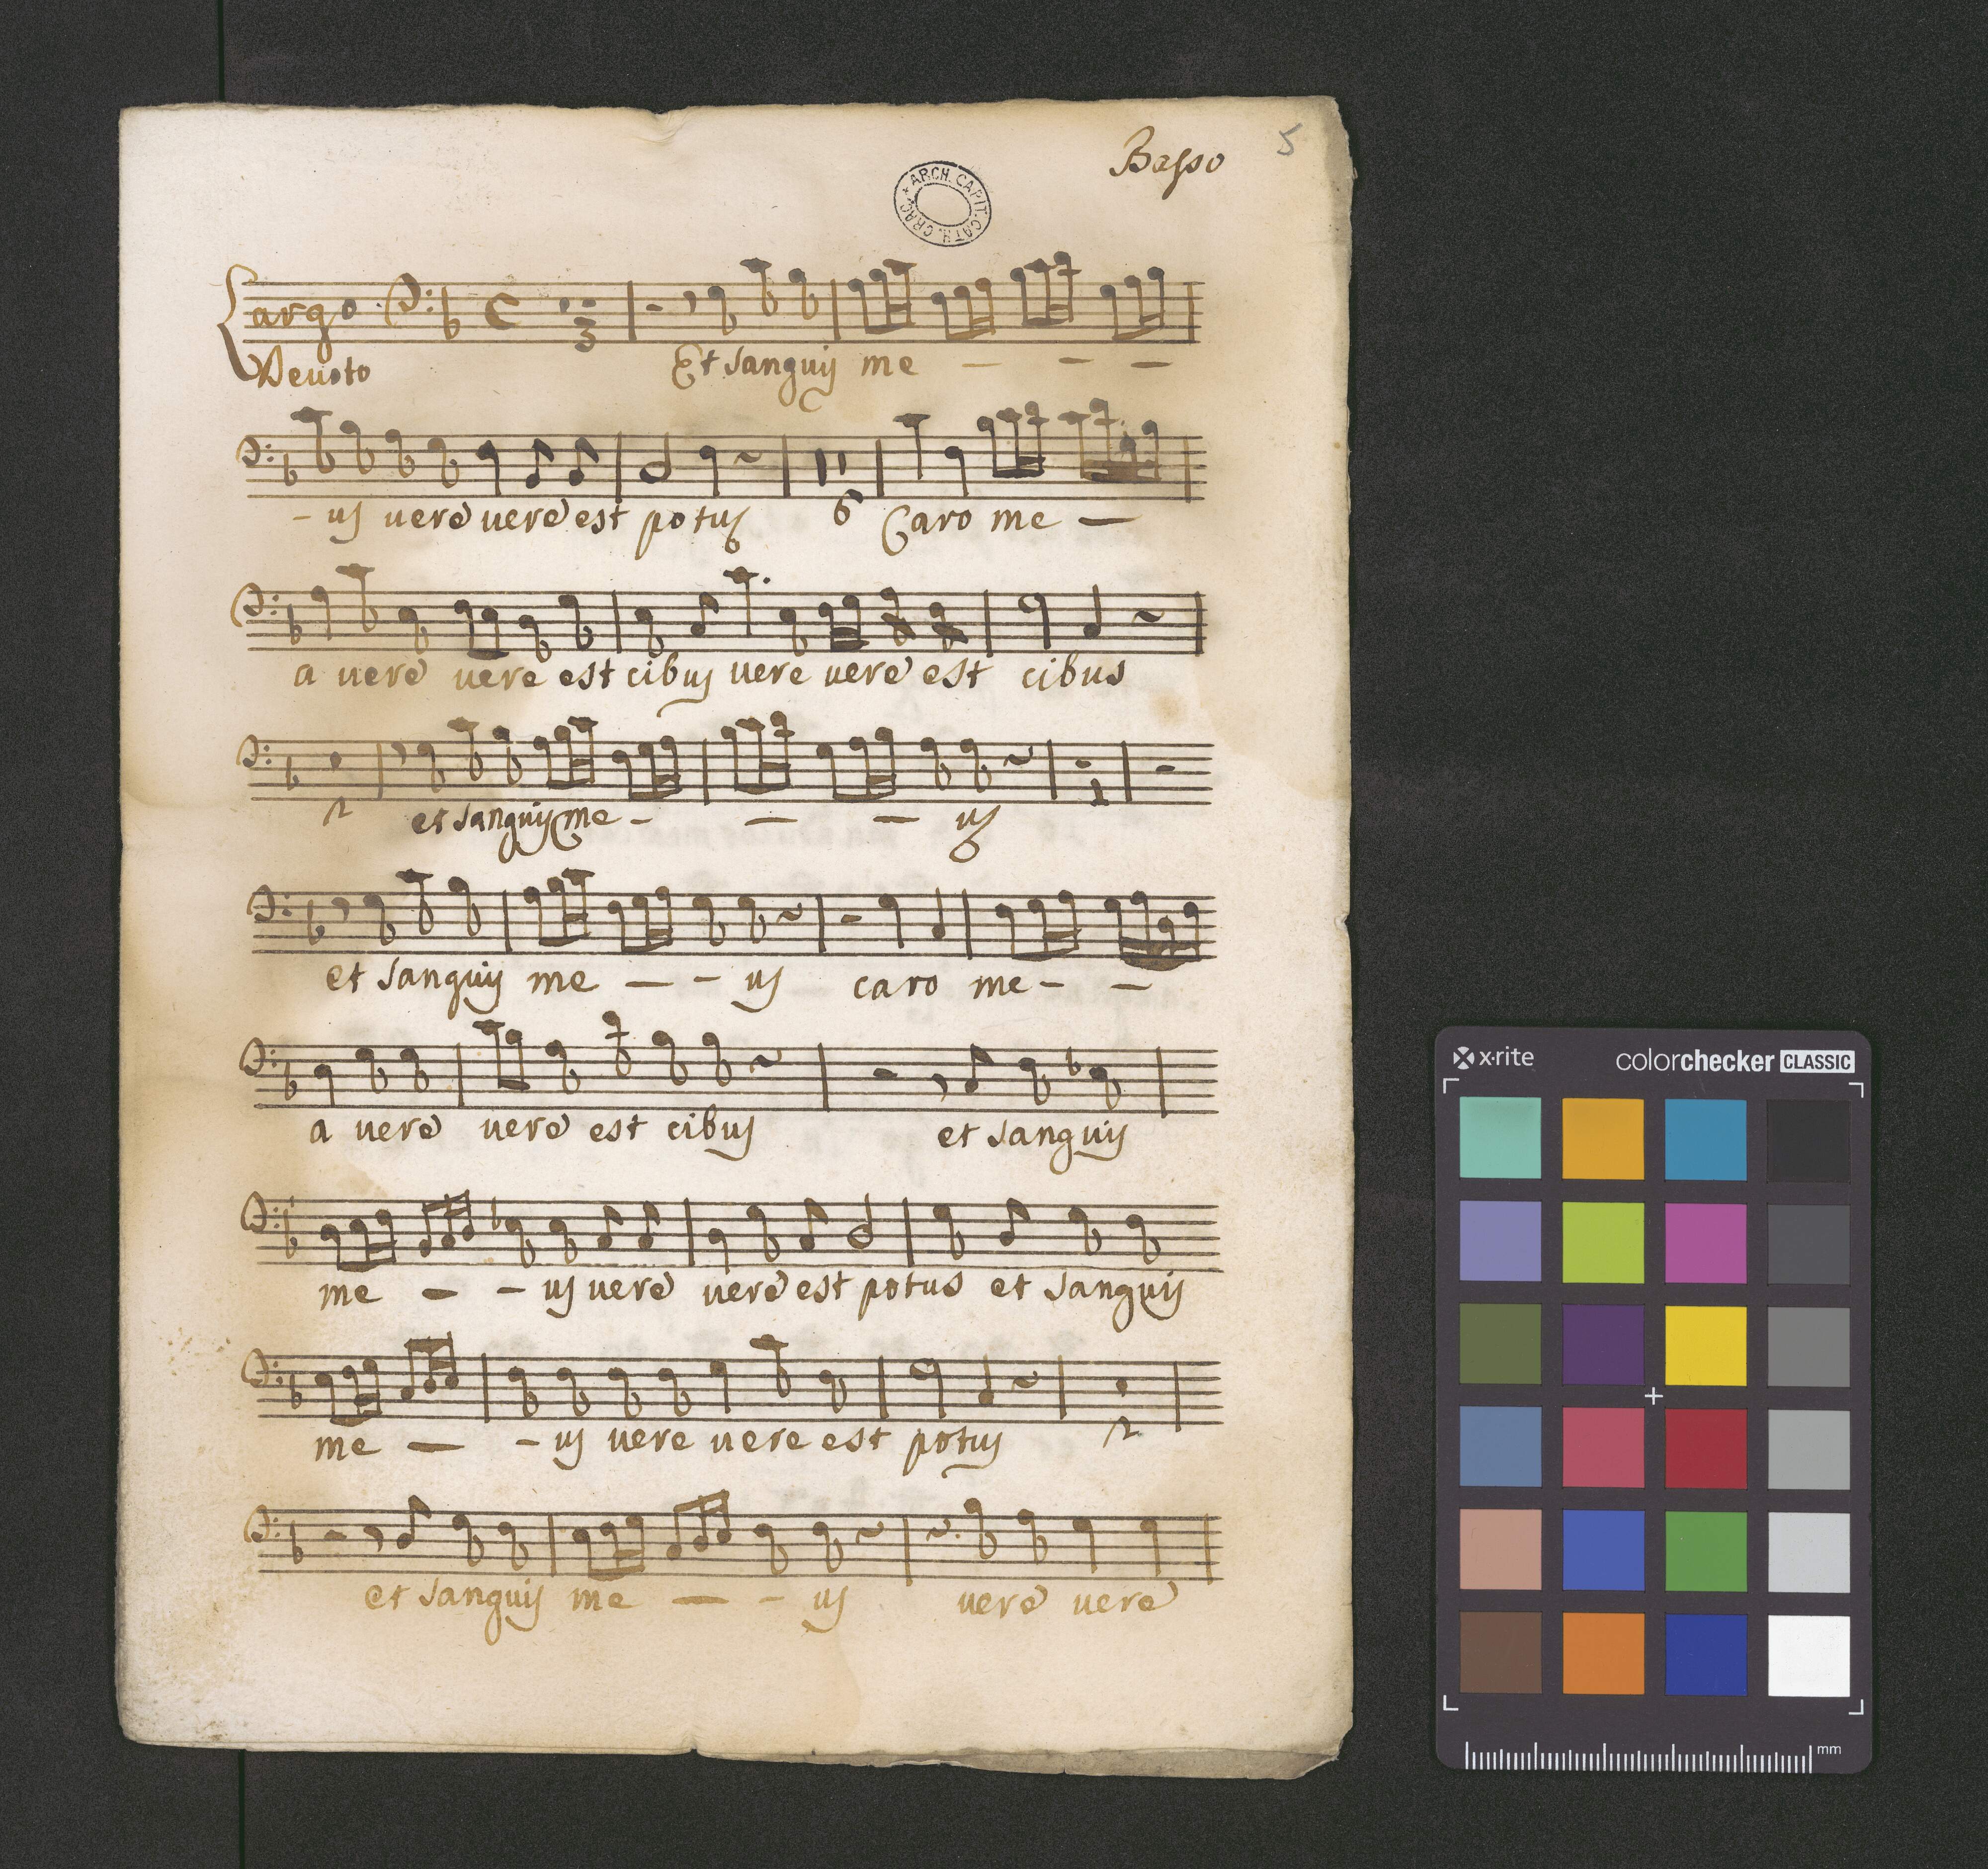 Basso 5
ARCH. CAPIT. CATH. CRAC.
Largo
3
Devoto Et sanguis me - - -
- us vere vere est potus 6 Caro me -
a vere vere est cibus vere vere est cibus
2 et sanguis me - - - us
et sanguis me - - us caro me - -
a vere vere est cibus et sanguis
me - - us vere vere est potus et sanguis
me - - us vere vere est potus 2
et sanguis me - - us vere vere
x-rite colorchecker CLASSIC
mm